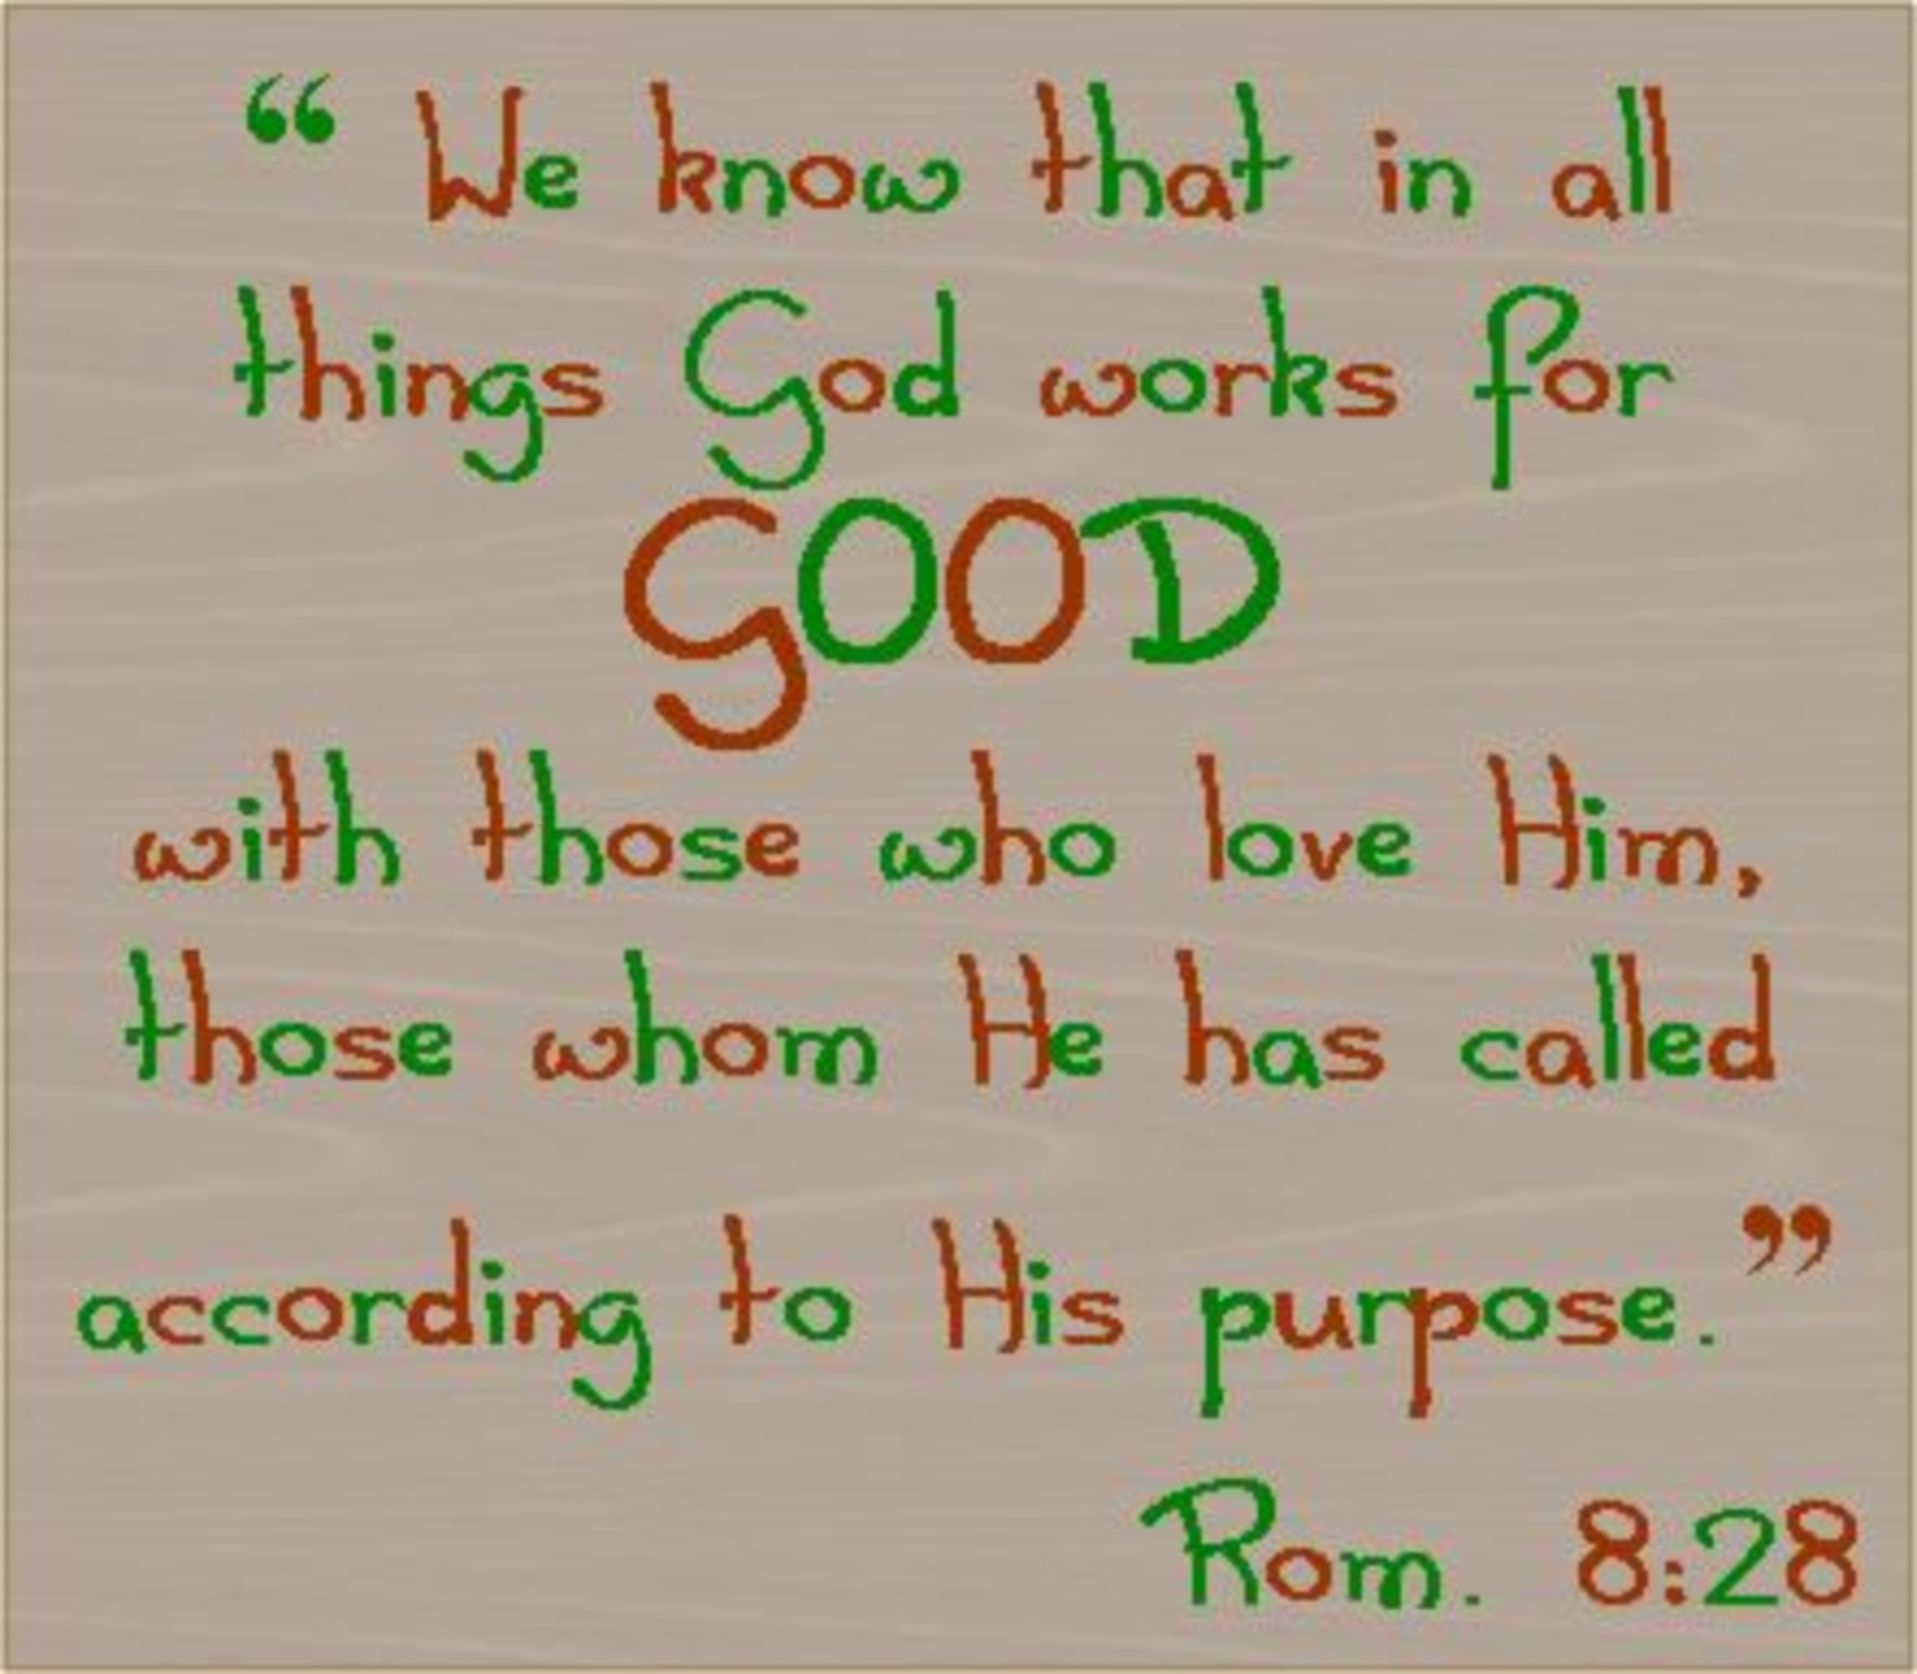 “ We know that in all
things God works for
GOOD
with those who love Him,
those whom He has called
according to His purpose.”
Rom. 8:28